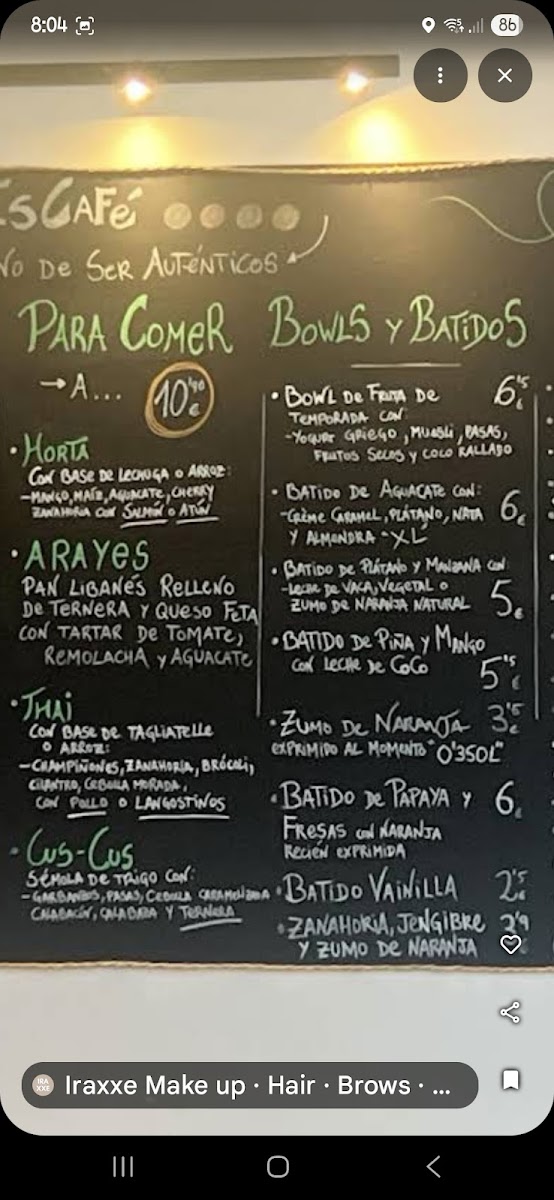 8:04
86
ESCAFÉ
NO DE SER AUTÉNTICOS
PARA COMER
→ A... 10'90 €
• HORTA
CON BASE DE LECHUGA O ARROZ:
- MANGO, MAÍZ, AGUACATE, CHERRY
ZANAHORIA CON SALMÓN O ATÚN
• ARAYES
PAN LIBANÉS RELLENO
DE TERNERA Y QUESO FETA
CON TARTAR DE TOMATE,
REMOLACHA Y AGUACATE
• THAI
CON BASE DE TAGLIATELLE
O ARROZ:
- CHAMPIÑONES, ZANAHORIA, BRÓCOLI,
CILANTRO, CEBOLLA MORADA,
CON POLLO O LANGOSTINOS
• CUS-CUS
SÉMOLA DE TRIGO CON:
- GARBANZOS, PASAS, CEBOLLA CARAMELIZADA
CALABACÍN, CALABAZA Y TERNERA
BOWLS Y BATIDOS
• BOWL DE FRUTA DE 6'5 €
TEMPORADA CON:
- YOGUR GRIEGO, MUESLI, PASAS,
FRUTOS SECOS Y COCO RALLADO
• BATIDO DE AGUACATE CON:
- CRÈME CARAMEL, PLÁTANO, NATA 6 €
Y ALMENDRA - XL
• BATIDO DE PLÁTANO Y MANZANA CON
- LECHE DE VACA, VEGETAL O
ZUMO DE NARANJA NATURAL 5 €
• BATIDO DE PIÑA Y MANGO
CON LECHE DE COCO 5'5 €
• ZUMO DE NARANJA 3'5 €
EXPRIMIDO AL MOMENTO "0'350L"
• BATIDO DE PAPAYA Y 6 €
FRESAS CON NARANJA
RECIÉN EXPRIMIDA
• BATIDO VAINILLA 2'5 €
• ZANAHORIA, JENGIBRE
Y ZUMO DE NARANJA
Iraxxe Make up · Hair · Brows · ...